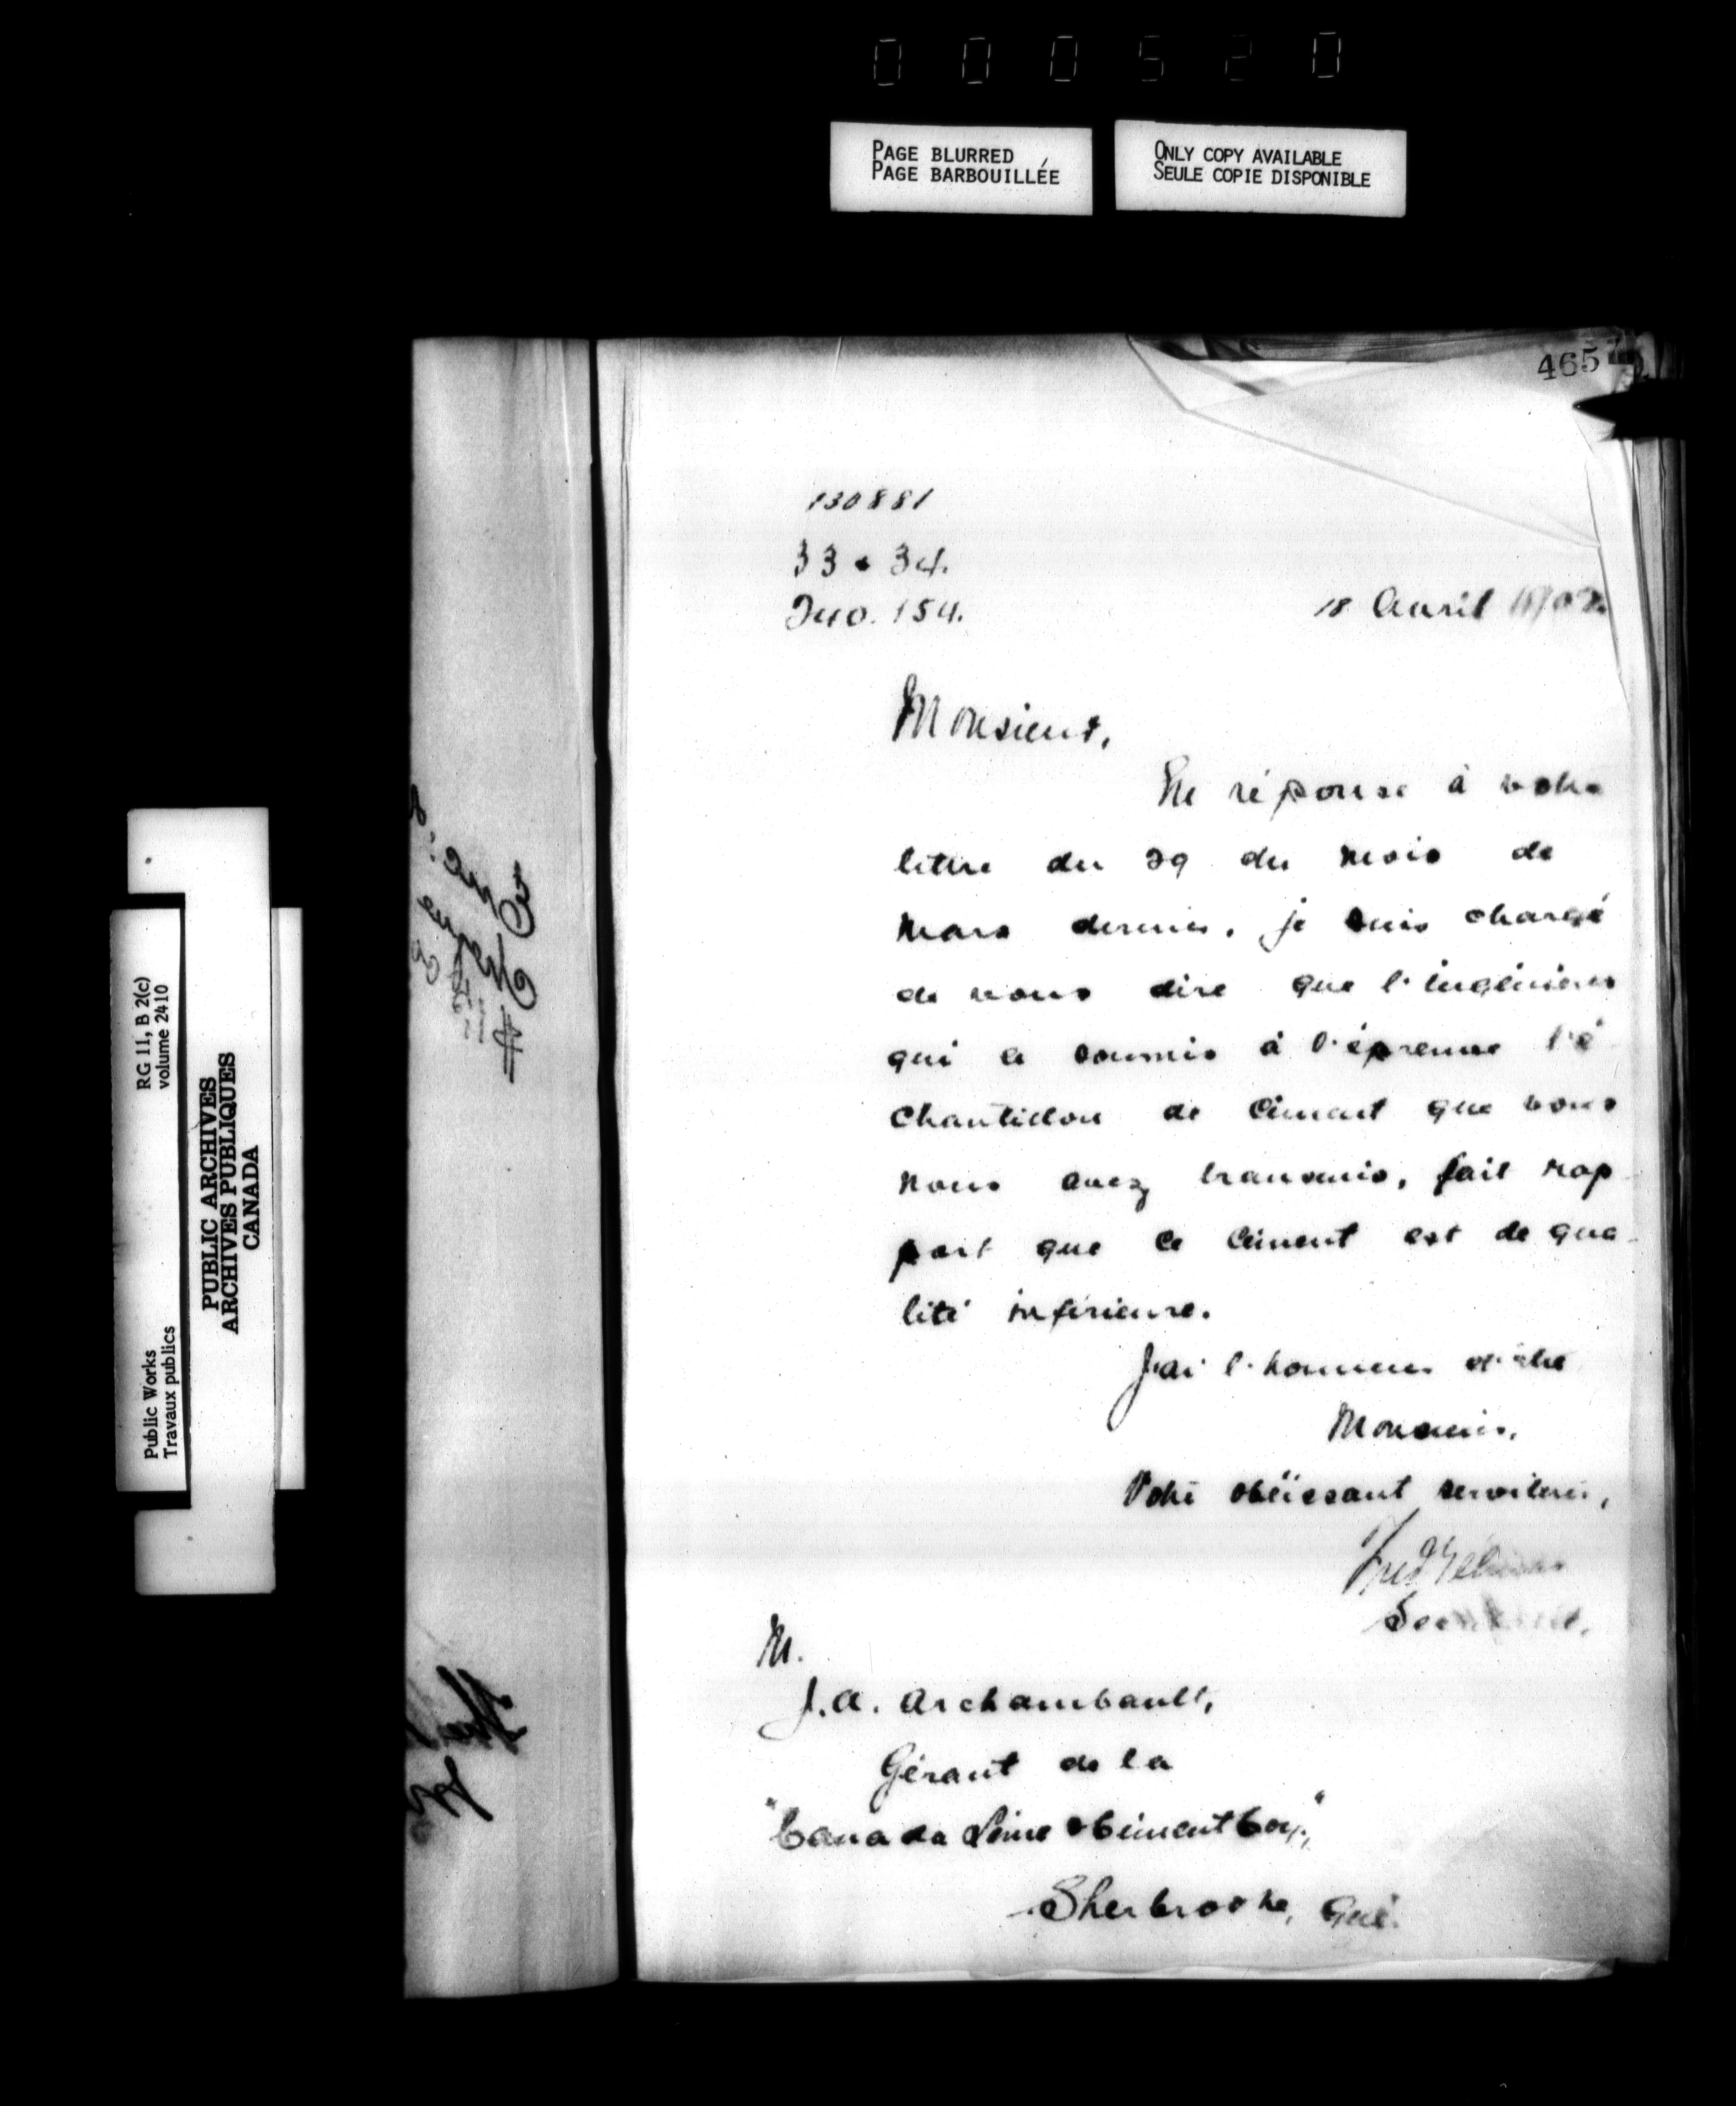 0 0 0 5 2 0
PAGE BLURRED
PAGE BARBOUILLÉE
ONLY COPY AVAILABLE
SEULE COPIE DISPONIBLE
465
130881
33 & 34.
154.
18 Avril
Monsieur,
En réponse à votre
lettre du 29 du mois de
Mars dernier, je suis chargé
de vous dire que l'ingénieur
qui a soumis à l'épreuve l'é
chantillon de Ciment que vous
nous avez transmis, fait rap
port que ce Ciment est de qua
lité inférieure.
J'ai l'honneur d'être
Monsieur,
Votre obéissant serviteur,
M.
J. A. Archambault,
Gérant de la
"Canada Lime & Ciment Coy.",
Sherbrooke, Qué.
RG 11, B 2(c)
volume 2410
Public Works
Travaux publics
PUBLIC ARCHIVES
ARCHIVES PUBLIQUES
CANADA